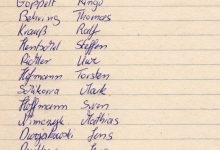 Göppelt Ringo
Behring Thomas
Krauß Ralf
Steffen
Richter Uwe
Hofmann Torsten
Maik
Hoffmann Sven
Nimczyk Matthias
Dwojakowski Jens